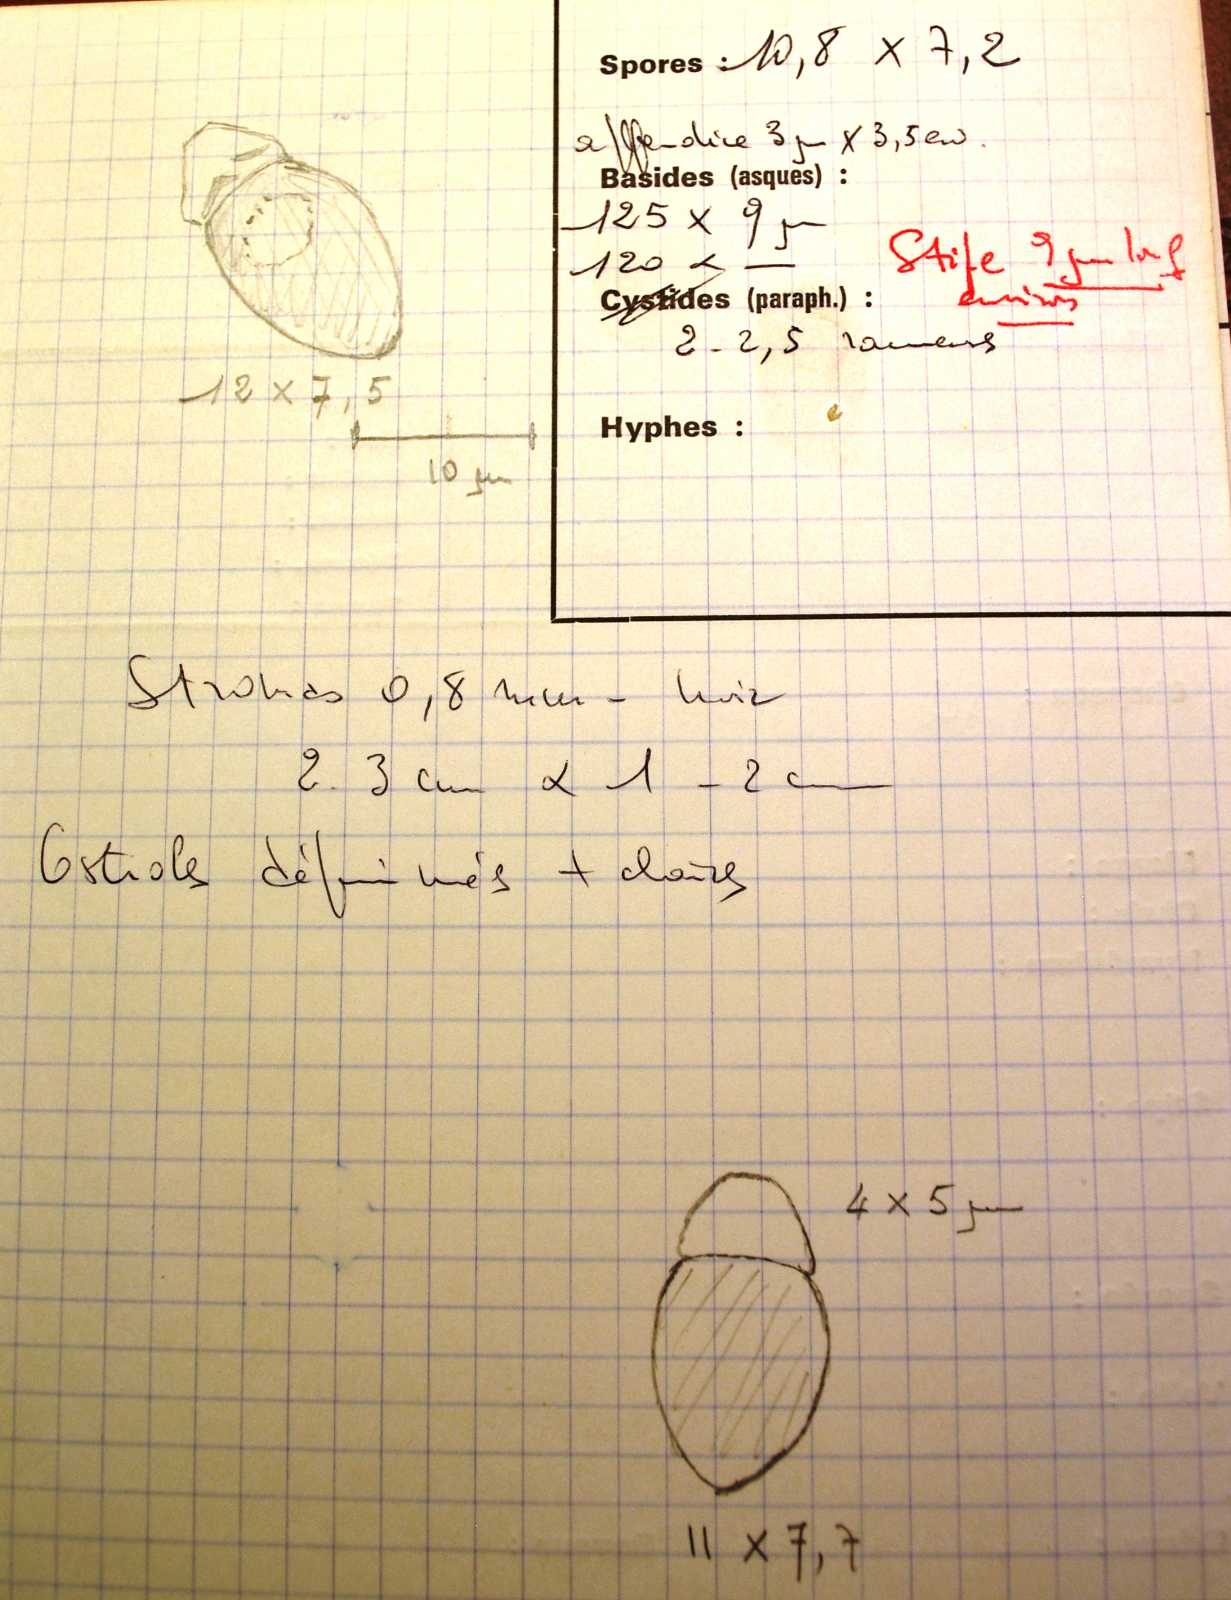 Spores : 10,8 x 7,2
appendice 3 µm x 3,5 env.
Basides (asques) :
125 x 9 µm
120 x —
Stipe 9 µm long
environ
Cystides (paraph.) :
2-2,5 rameux
Hyphes :
12 x 7,5
10 µm
Stromas 0,8 mm - noir
2-3 cm x 1-2 cm
Ostioles + clairs
4 x 5 µm
11 x 7,7